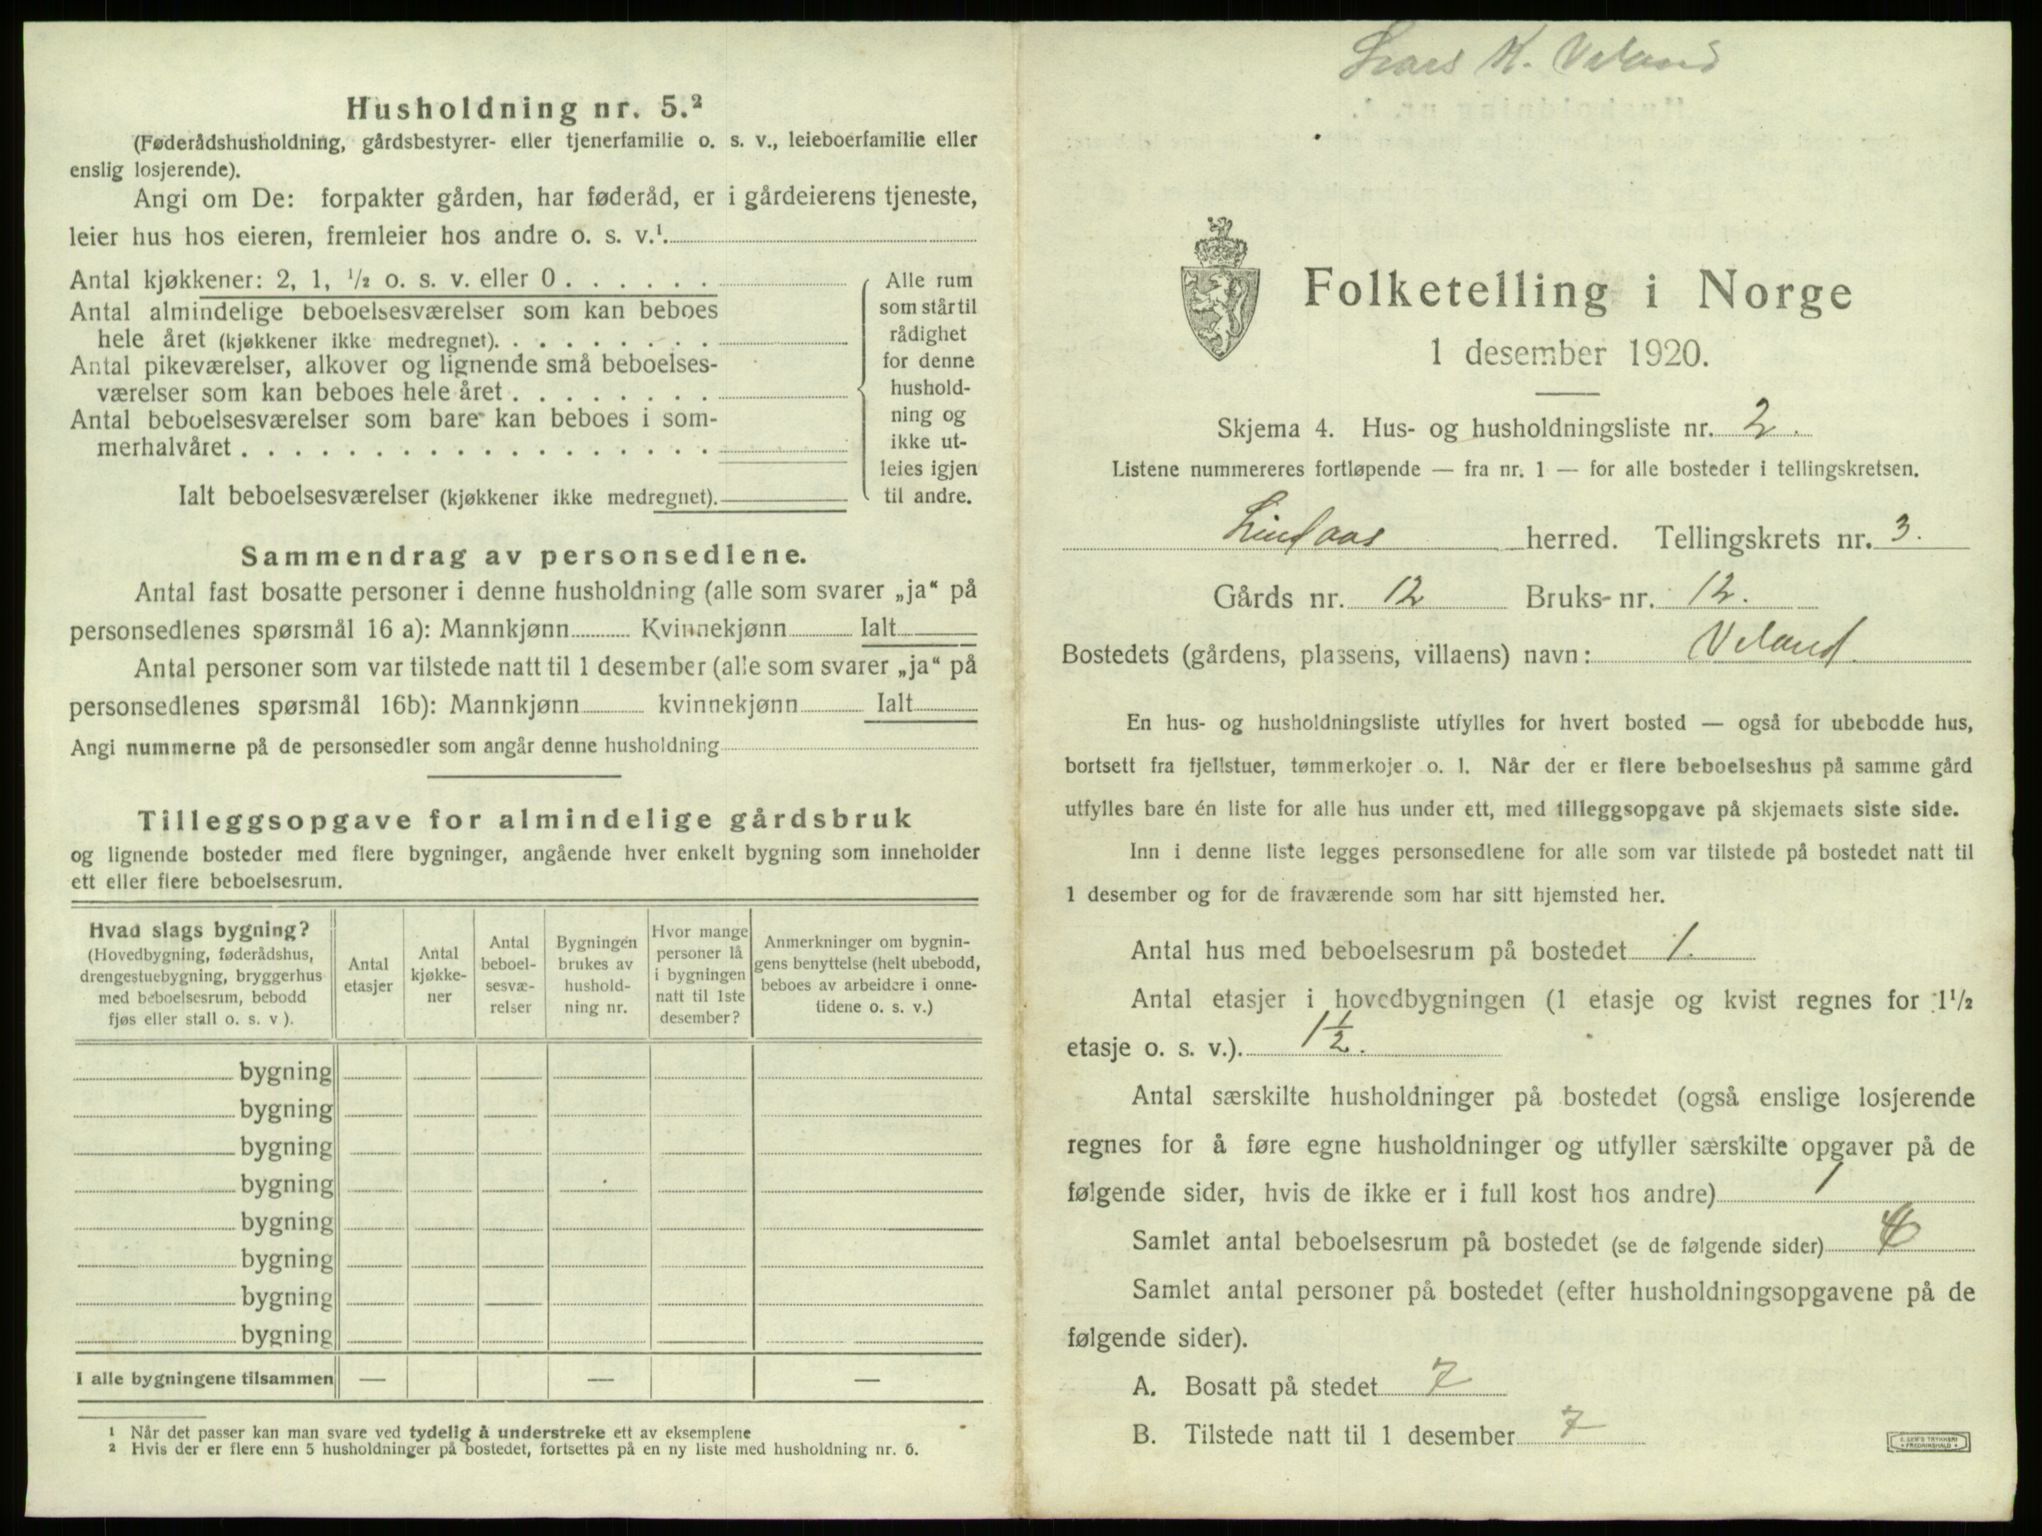 Husholdning nr. 5.²
(Føderådshusholdning, gårdsbestyrer- eller tjenerfamilie o. s. v., leieboerfamilie eller
enslig losjerende).
Angi om De: forpakter gården, har føderåd, er i gårdeierens tjeneste,
leier hus hos eieren, fremleier hos andre o. s. v.¹.
Antal kjøkkener: 2, 1, ½ o. s. v. eller 0 . . . . . .
Antal almindelige beboelsesværelser som kan beboes
hele året (kjøkkener ikke medregnet). . . . . . . . .
Antal pikeværelser, alkover og lignende små beboelses-
værelser som kan beboes hele året . . . . . . . .
Antal beboelsesværelser som bare kan beboes i som-
merhalvåret . . . . . . . . . . . . . . . . . .
Ialt beboelsesværelser (kjøkkener ikke medregnet).
Alle rum
som står til
rådighet
for denne
hushold-
ning og
ikke ut-
leies igjen
til andre.
Sammendrag av personsedlene.
Antal fast bosatte personer i denne husholdning (alle som svarer „ja“ på
personsedlenes spørsmål 16 a): Mannkjønn Kvinnekjønn Ialt
Antal personer som var tilstede natt til 1 desember (alle som svarer „ja“ på
personsedlenes spørsmål 16b): Mannkjønn kvinnekjønn Ialt
Angi nummerne på de personsedler som angår denne husholdning
Tilleggsopgave for almindelige gårdsbruk
og lignende bosteder med flere bygninger, angående hver enkelt bygning som inneholder
ett eller flere beboelsesrum.
Hvad slags bygning?
(Hovedbygning, føderådshus,
drengestuebygning, bryggerhus
med beboelsesrum, bebodd
fjøs eller stall o. s. v ).
Antal
etasjer
Antal
kjøkke-
ner
Antal
beboel-
sesvæ-
relser
Bygningen
brukes av
hushold-
ning nr.
Hvor mange
personer lå
i bygningen
natt til 1ste
desember?
Anmerkninger om bygnin-
gens benyttelse (helt ubebodd,
beboes av arbeidere i onne-
tidene o. s. v.)
bygning
bygning
bygning
bygning
bygning
bygning
bygning
bygning
I alle bygningene tilsammen — — —
¹ Når det passer kan man svare ved tydelig å understreke ett av eksemplene
² Hvis der er flere enn 5 husholdninger på bostedet, fortsettes på en ny liste med husholdning nr. 6.
Lars K. Veland
Folketelling i Norge
1 desember 1920.
Skjema 4. Hus- og husholdningsliste nr. 2.
Listene nummereres fortløpende — fra nr. 1 — for alle bosteder i tellingskretsen.
Lindaas herred. Tellingskrets nr. 3.
Gårds nr. 12 Bruks- nr. 12.
Bostedets (gårdens, plassens, villaens) navn: Veland
En hus- og husholdningsliste utfylles for hvert bosted — også for ubebodde hus,
bortsett fra fjellstuer, tømmerkojer o. l. Når der er flere beboelseshus på samme gård
utfylles bare én liste for alle hus under ett, med tilleggsopgave på skjemaets siste side.
Inn i denne liste legges personsedlene for alle som var tilstede på bostedet natt til
1 desember og for de fraværende som har sitt hjemsted her.
Antal hus med beboelsesrum på bostedet 1.
Antal etasjer i hovedbygningen (1 etasje og kvist regnes for 1½
etasje o. s. v.). 1½.
Antal særskilte husholdninger på bostedet (også enslige losjerende
regnes for å føre egne husholdninger og utfyller særskilte opgaver på de
følgende sider, hvis de ikke er i full kost hos andre) 1
Samlet antal beboelsesrum på bostedet (se de følgende sider)
Samlet antal personer på bostedet (efter husholdningsopgavene på de
følgende sider).
A. Bosatt på stedet 7
B. Tilstede natt til 1 desember 7